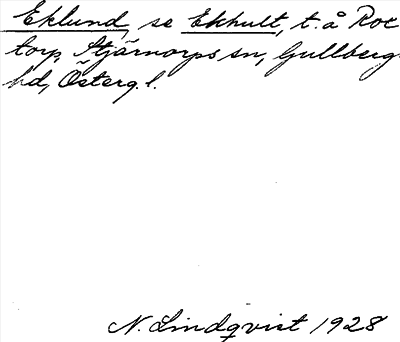 Eklund, se Ekhult, t. å Roc
torp, Stjärnorps sn, Gullbergs
hd, Österg. l.
N. Lindqvist 1928